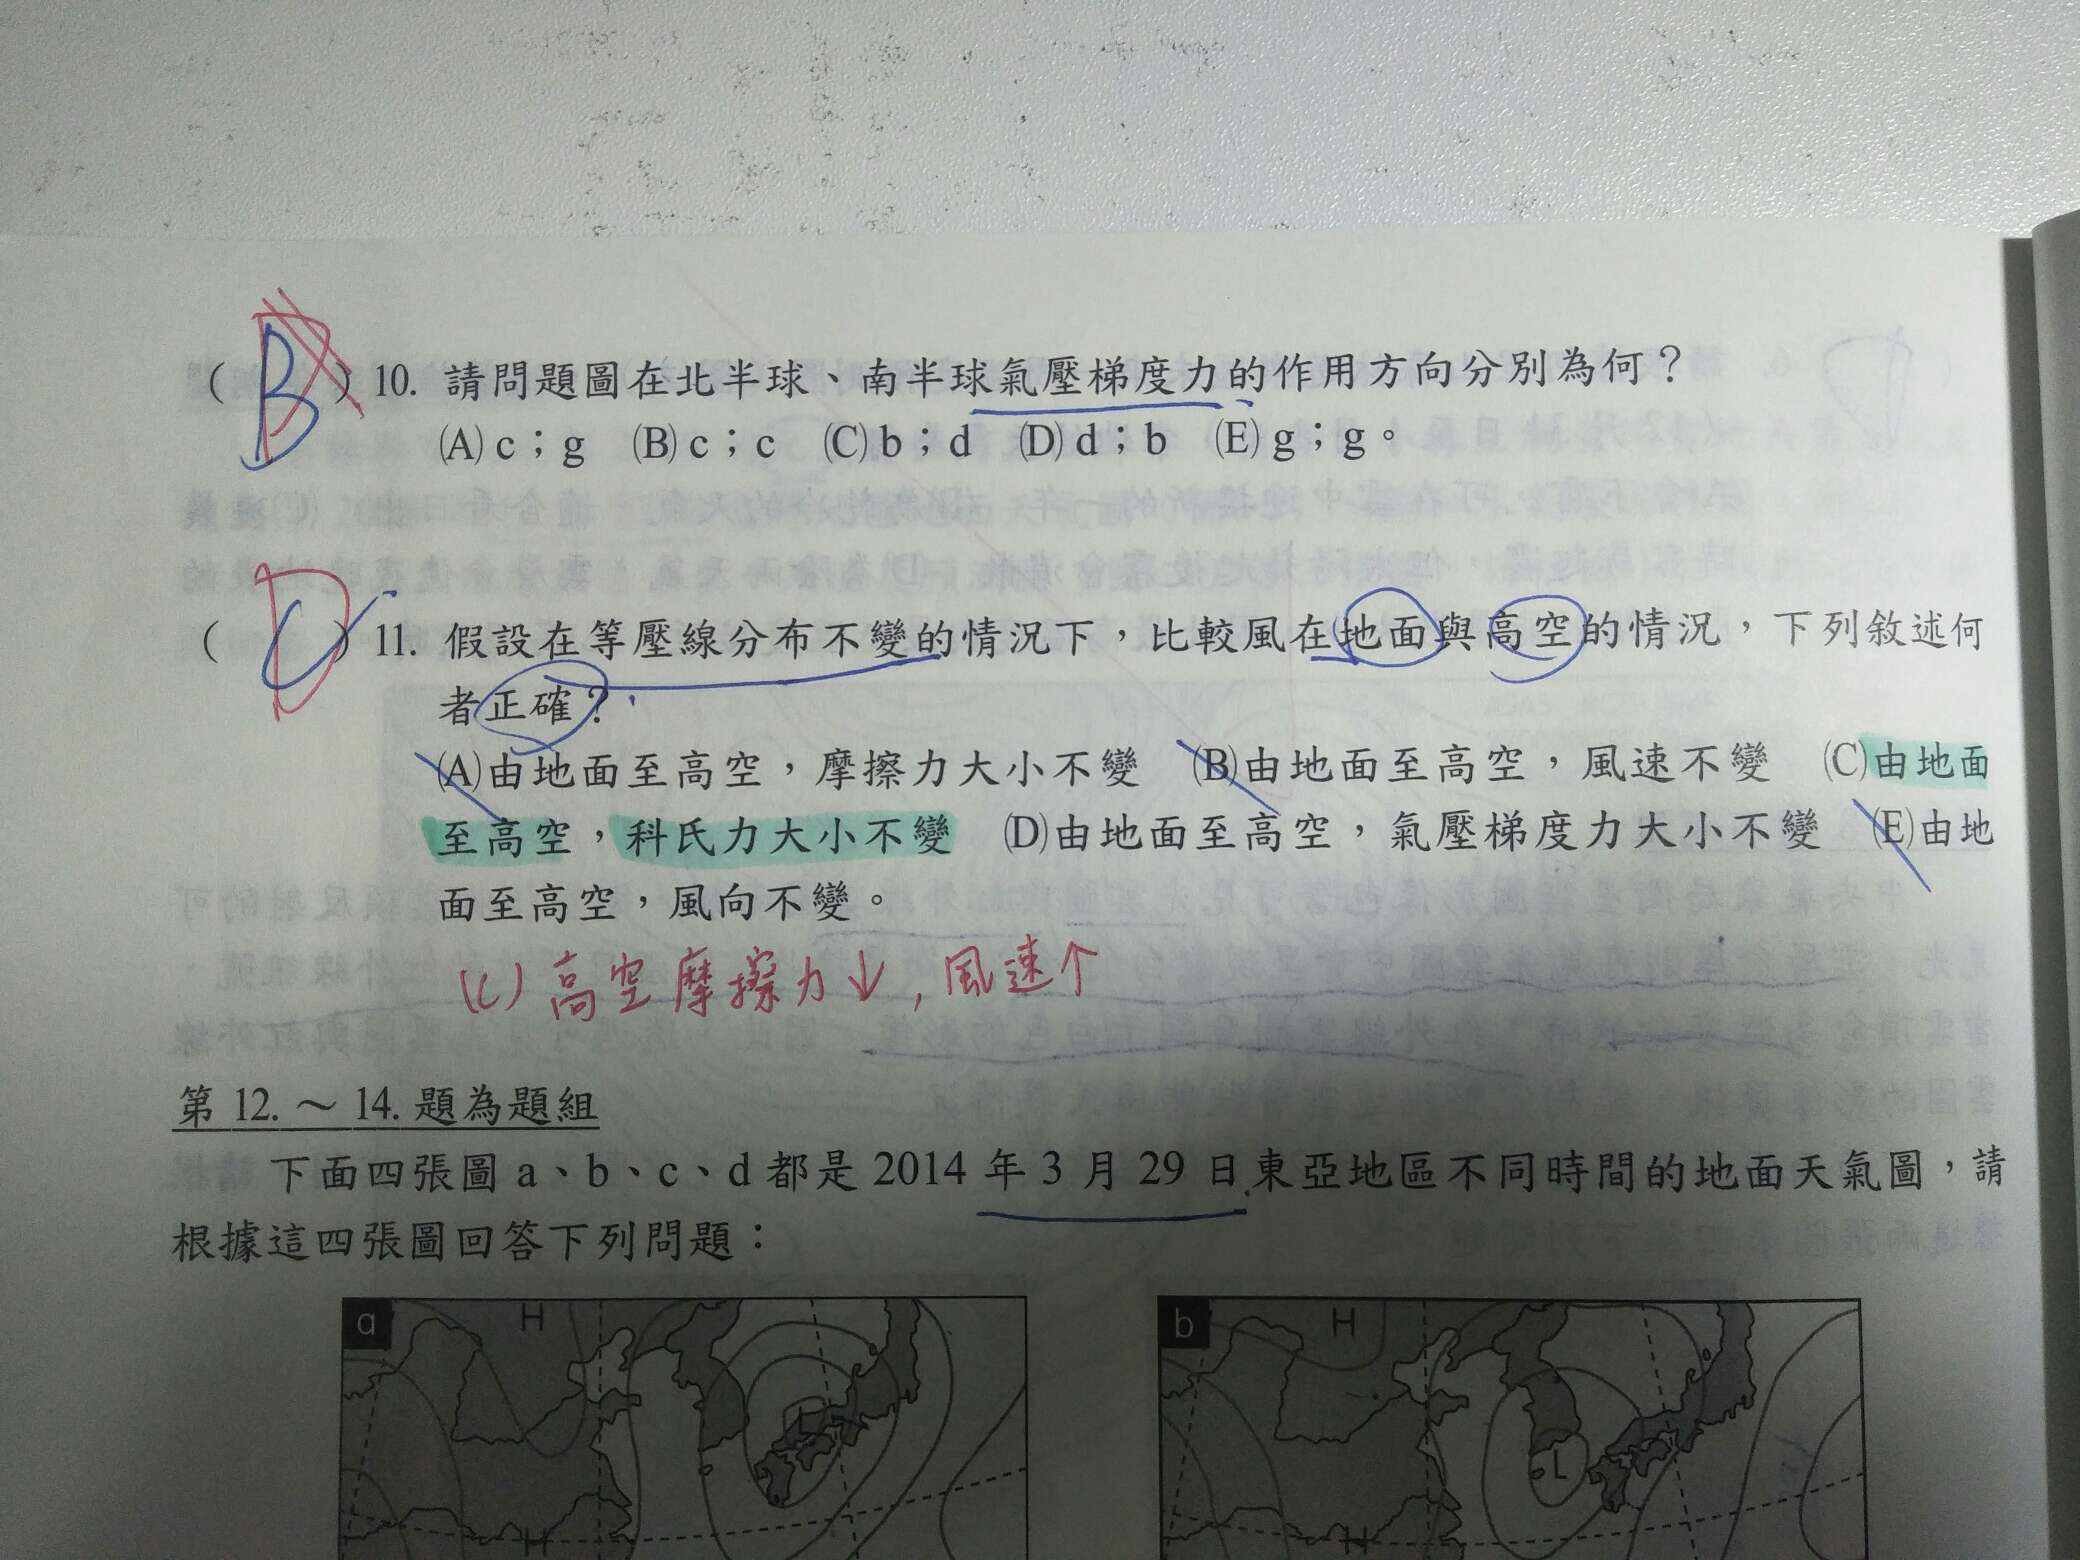 ( B ) 10. 請問題圖在北半球、南半球氣壓梯度力的作用方向分別為何？
(A) c；g (B) c；c (C) b；d (D) d；b (E) g；g。
( D C ) 11. 假設在等壓線分布不變的情況下，比較風在地面與高空的情況，下列敘述何
者正確？
(A)由地面至高空，摩擦力大小不變 (B)由地面至高空，風速不變 (C)由地面
至高空，科氏力大小不變 (D)由地面至高空，氣壓梯度力大小不變 (E)由地
面至高空，風向不變。
(C) 高空摩擦力↓，風速↑
第 12. ～ 14. 題為題組
下面四張圖 a、b、c、d 都是 2014 年 3 月 29 日東亞地區不同時間的地面天氣圖，請
根據這四張圖回答下列問題：
a H L H
b H L H